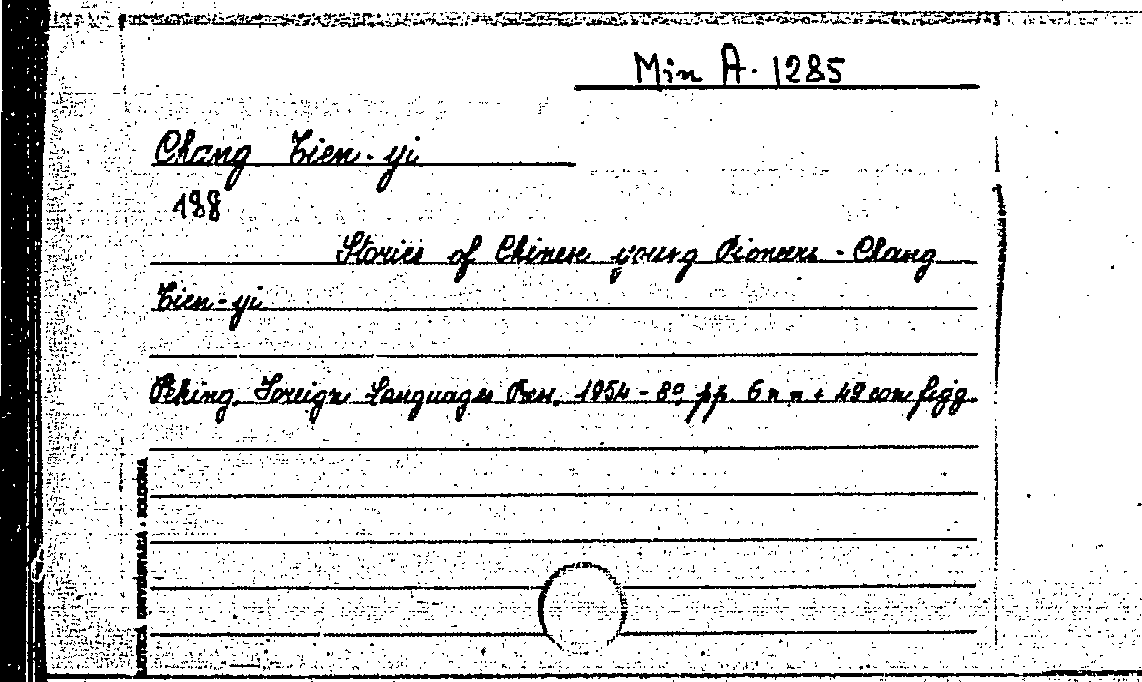 Min A. 1285
Chang Tien-yi
188
Stories of Chinese young Pioneers - Chang
Tien-yi
Peking, Foreign Languages Press, 1954 - 8º pp. 6 n n + 49 con figg.
BIBLIOTECA UNIVERSITARIA - BOLOGNA